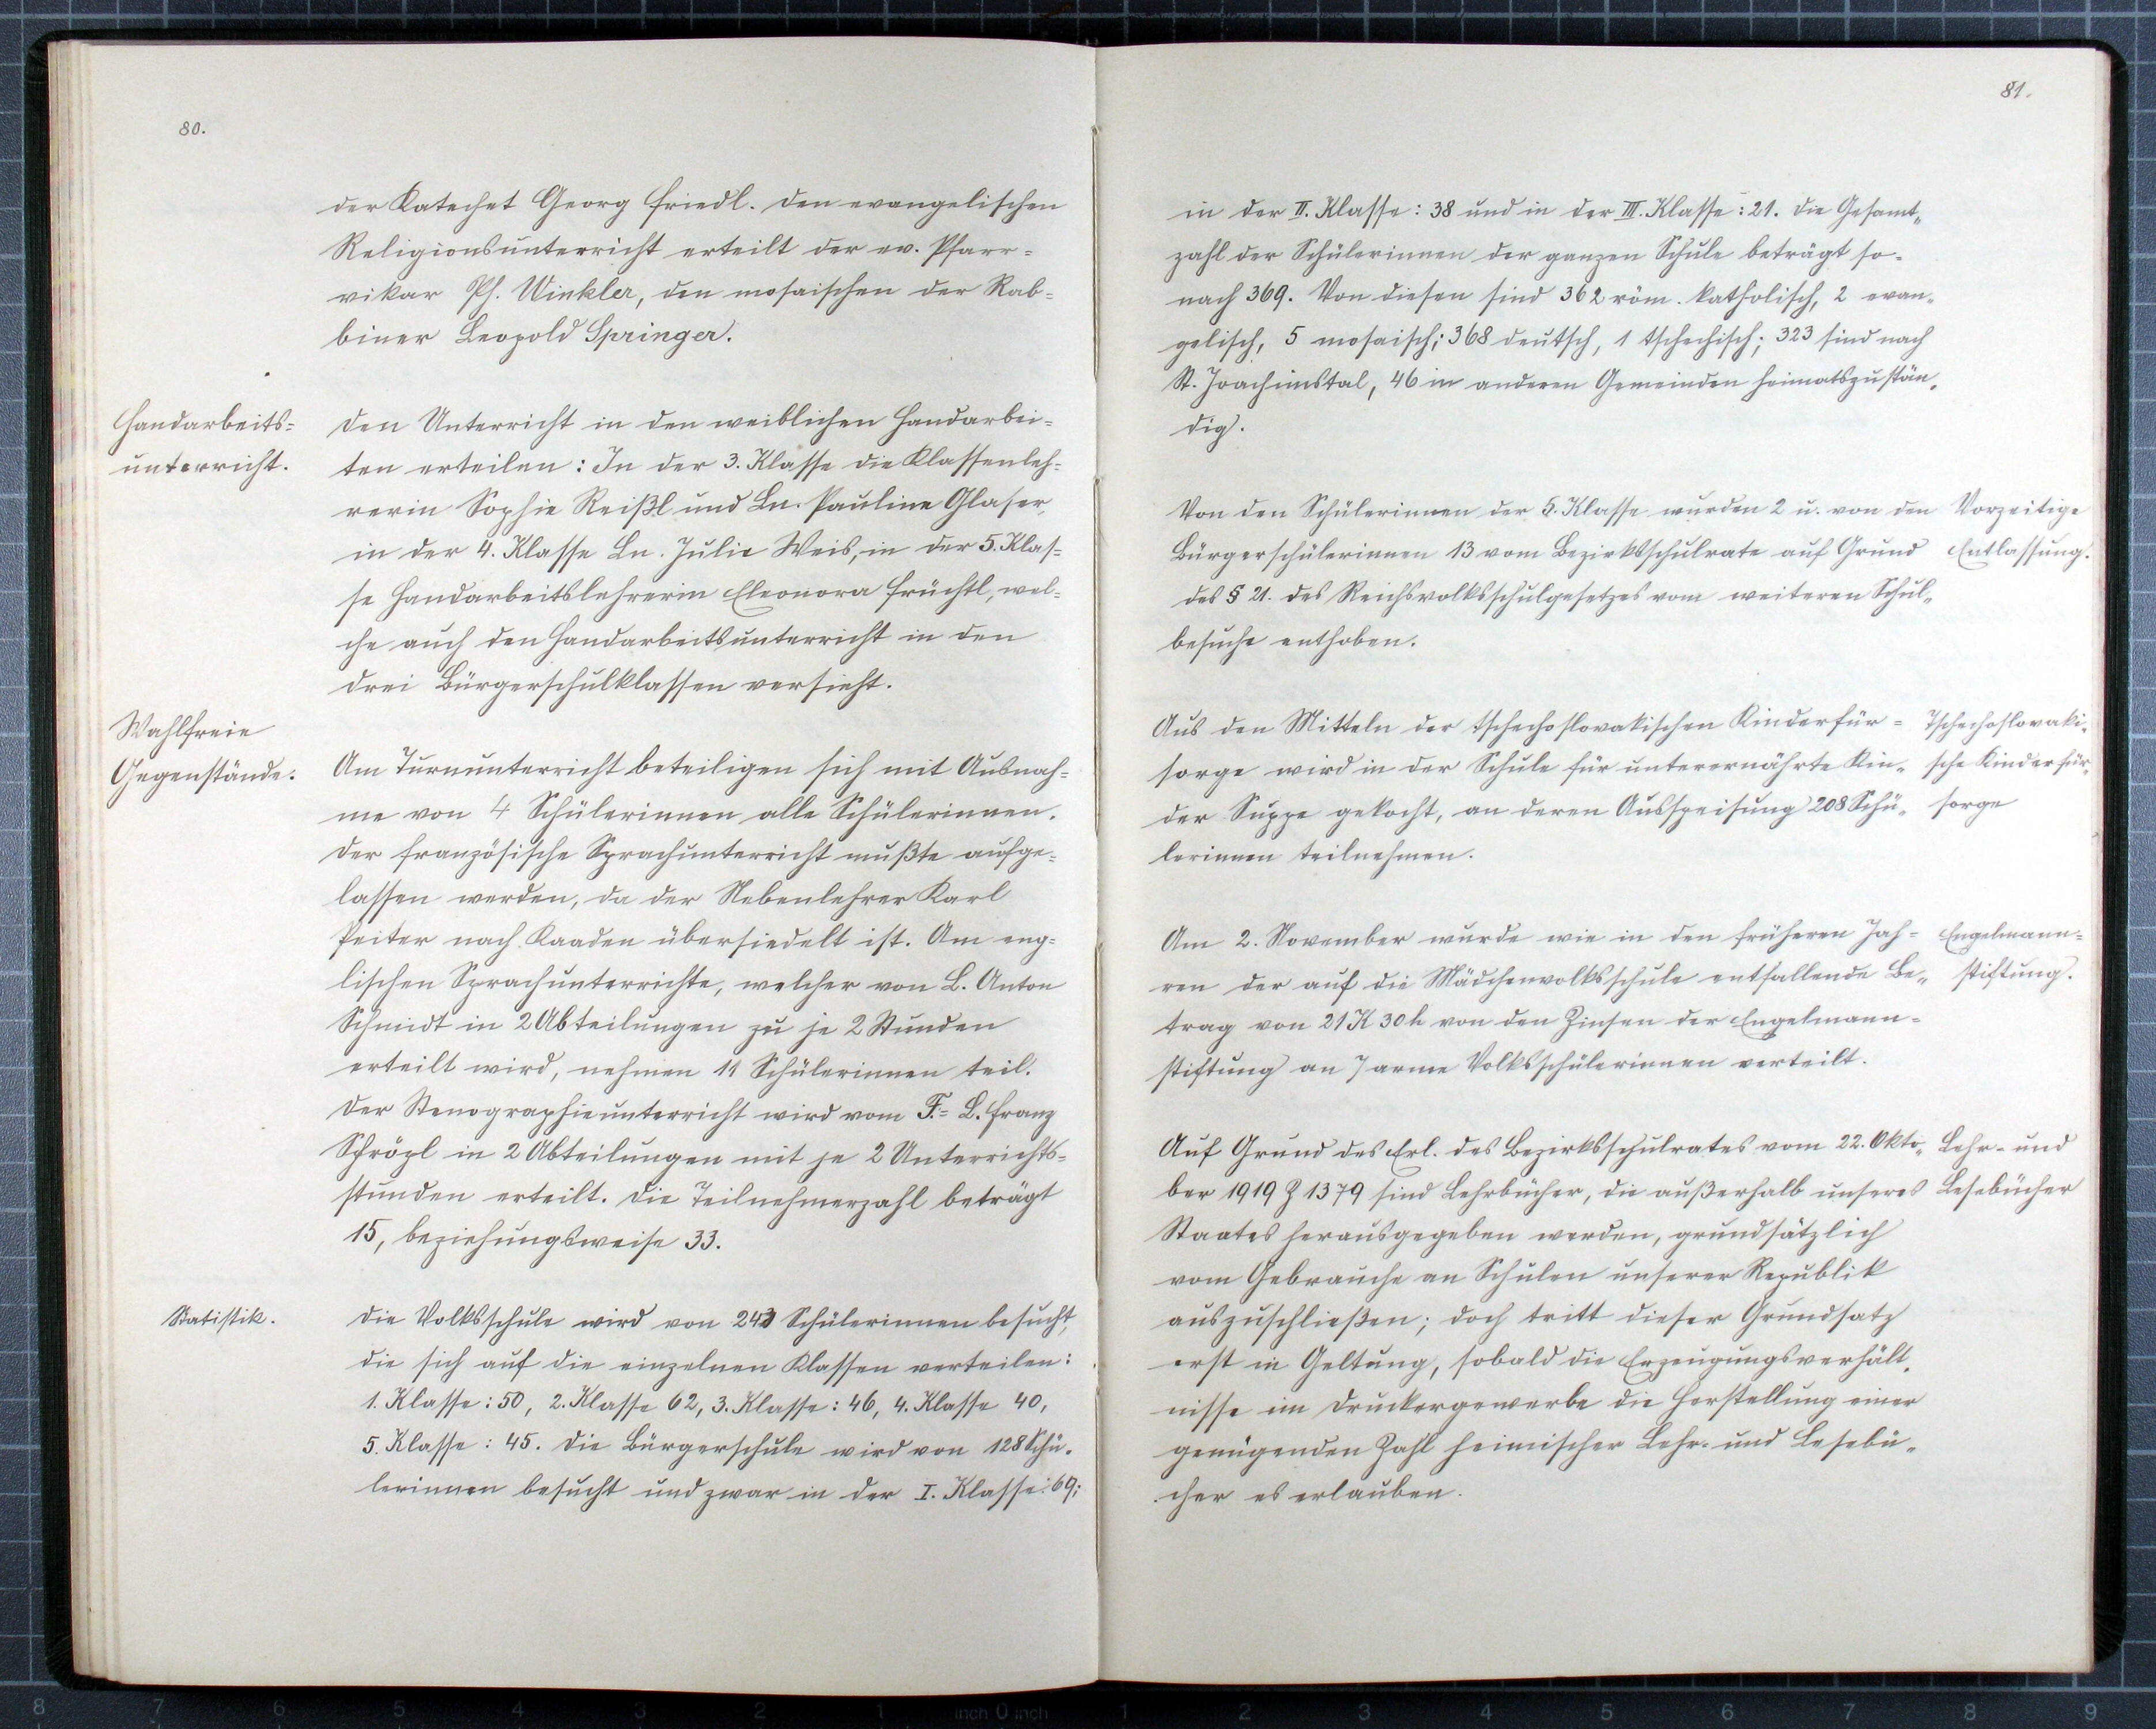 80.
der Katechet Georg Friedl. Den evangelischen
Religionsunterricht erteilt der ev. Pfarr=
vikar Ph. Winkler, den mosaischen der Rab=
biner Leopold Springer.
Handarbeits=
unterricht.
Den Unterricht in den weiblichen Handarbei=
ten erteilen: In der 3. Klasse die Klassenleh=
rerin Sophie Reißl und Ln. Pauline Glaser,
in der 4. Klasse Ln. Julie Weis, in der 5. Klas=
se Handarbeitslehrerin Eleonora Früchtl, wel=
che auch den Handarbeitsunterricht in den
drei Bürgerschulklassen versieht.
Wahlfreie
Gegenstände.
Am Turnunterricht beteiligen sich mit Ausnah=
me von 4 Schülerinnen alle Schülerinnen.
Der französische Sprachunterricht mußte aufge=
lassen werden, da der Nebenlehrer Karl
Peiter nach Kaaden übersiedelt ist. Am eng=
lischen Sprachunterrichte, welcher von L. Anton
Schmidt in 2 Abteilungen zu je 2 Stunden
erteilt wird, nehmen 11 Schülerinnen teil.
Der Stenographieunterricht wird vom F.=L. Franz
Schröpl in 2 Abteilungen mit je 2 Unterrichts=
stunden erteilt. Die Teilnehmerzahl beträgt
15, beziehungsweise 33.
Statistik.
Die Volksschule wird von 243 Schülerinnen besucht,
die sich auf die einzelnen Klassen verteilen:
1. Klasse: 50, 2. Klasse 62, 3. Klasse: 46, 4. Klasse 40,
5. Klasse: 45. Die Bürgerschule wird von 128 Schü=
lerinnen besucht und zwar in der I. Klasse: 69;
81.
in der II. Klasse: 38 und in der III. Klasse: 21. Die Gesamt=
zahl der Schülerinnen der ganzen Schule beträgt so=
nach 369. Von diesen sind 362 röm. katholisch, 2 evan=
gelisch, 5 mosaisch; 368 deutsch, 1 tschechisch; 323 sind nach
St. Joachimstal, 46 in anderen Gemeinden heimatszustän=
dig.
Von den Schülerinnen der 5. Klasse wurden 2 u. von den
Bürgerschülerinnen 13 vom Bezirksschulrate auf Grund
des § 21. des Reichsvolksschulgesetzes vom weiteren Schul=
besuche enthoben.
Vorzeitige
Entlassung.
Aus den Mitteln der tschechoslovakischen Kinderfür=
sorge wird in der Schule für unterernährte Kin=
der Suppe gekocht, an deren Ausspeisung 208 Schü=
lerinnen teilnehmen.
Tschechoslovaki=
sche Kinderfür=
sorge
Am 2. November wurde wie in den früheren Jah=
ren der auf die Mädchenvolksschule entfallende Be=
trag von 21 K 30 h von den Zinsen der Engelmann=
stiftung an 7 arme Volksschülerinnen verteilt.
Engelmann=
stiftung.
Auf Grund des Erl. des Bezirksschulrates vom 22. Okto=
ber 1919 Z 1379 sind Lehrbücher, die außerhalb unseres
Staates herausgegeben werden, grundsätzlich
vom Gebrauche an Schulen unserer Republik
auszuschließen; doch tritt dieser Grundsatz
erst in Geltung, sobald die Erzeugungsverhält=
nisse im Druckergewerbe die Herstellung einer
genügenden Zahl heimischer Lehr- und Lesebü=
cher es erlauben.
Lehr- und
Lesebücher
8 7 6 5 4 3 2 1 inch 0 inch 1 2 3 4 5 6 7 8 9